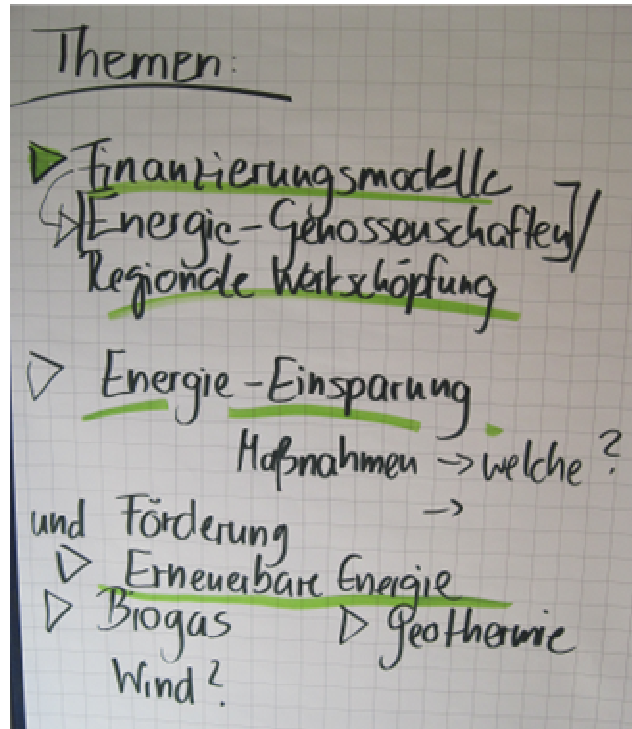 Themen:
Finanzierungsmodelle
[Energie-Genossenschaften]/
Regionale Wertschöpfung
Energie-Einsparung
Maßnahmen → welche?
→
und Förderung
Erneuerbare Energie
Biogas ▷ Geothermie
Wind?